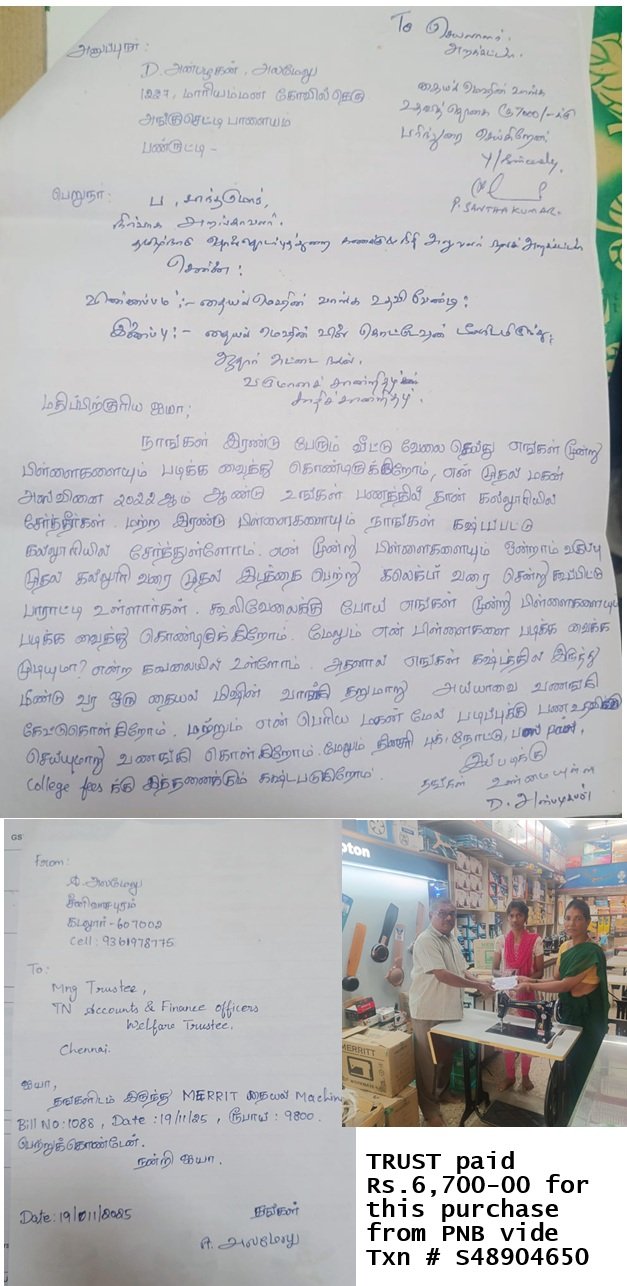 To
செயலாளர்.
அறக்கட்டளை.
தையல் மெஷின் வாங்க
உதவித் தொகை ரூ7000/-க்கு
பரிந்துரை செய்கிறேன்
P. SANTHA KUMAR.
அனுப்புநர் :
D. அன்பழகன், அலமேலு
1227, மாரியம்மன் கோவில்தெரு
அங்குசெட்டி பாளையம்
பண்ருட்டி -
பெறுநர் :
நிர்வாக அறங்காவலர்.
சென்னை
விண்ணப்பம் :- தையல் மெஷின் வாங்க உதவி வேண்டி :
இணைப்பு :- தையல் மெஷின் விலை கொட்டேஷன்
ஆதார் அட்டை நகல்.
வருமானச் சான்றிதழ்
சாதிச் சான்றிதழ்.
மதிப்பிற்குரிய ஐயா ;
நாங்கள் இரண்டு பேரும் வீட்டு வேலை செய்து எங்கள் மூன்று
பிள்ளைகளையும் படிக்க வைத்து கொண்டிருக்கிறோம், என் முதல் மகன்
அஸ்வினை 2022ஆம் ஆண்டு உங்கள் பணத்தில் தான் கல்லூரியில்
சேர்த்தீர்கள். மற்ற இரண்டு பிள்ளைகளையும் நாங்கள் கஷ்டப்பட்டு
கல்லூரியில் சேர்த்துள்ளோம். என் மூன்று பிள்ளைகளையும் ஒன்றாம் வகுப்பு
முதல் கல்லூரி வரை முதல் இடத்தை பெற்று கலெக்டர் வரை சென்று கூப்பிட்டு
பாராட்டி உள்ளார்கள். கூலிவேலைக்கு போய் எங்கள் மூன்று பிள்ளைகளையும்
படிக்க வைத்து கொண்டிருக்கிறோம். மேலும் என் பிள்ளைகளை படிக்க வைக்க
முடியுமா? என்ற கவலையில் உள்ளோம். அதனால் எங்கள் கஷ்டத்தில் இருந்து
மீண்டு வர ஒரு தையல் மிஷின் வாங்கி தறுமாறு அய்யாவை வணங்கி
கேட்டுகொள்கிறோம். மற்றும் என் பெரிய மகன் மேல் படிப்புக்கு பண உதவி
செய்யுமாறு வணங்கி கொள்கிறோம். மேலும் தினசரி புக், நோட்டு, பஸ் pass,
College fees க்கு இத்தனைக்கும் கஷ்டபடுகிறோம்.
இப்படிக்கு
தங்கள் உண்மையுள்ள
D. அன்பழகன்
GS
From:
A. அலமேலு
சீனிவாசபுரம்
கடலூர் - 607002
Cell : 9361978775
To:
Mng Trustee,
TN Accounts & Finance Officers
Welfare Trustee,
Chennai.
ஐயா,
தங்களிடம் இருந்து MERRIT தையல் Machine
Bill No: 1088, Date : 19/11/25, ரூபாய் : 9800.
பெற்றுக்கொண்டேன்.
நன்றி ஐயா.
Date: 19/011/2025
தங்கள்
A. அலமேலு
pton
MERRITT
TRUST paid
Rs.6,700-00 for
this purchase
from PNB vide
Txn # S48904650